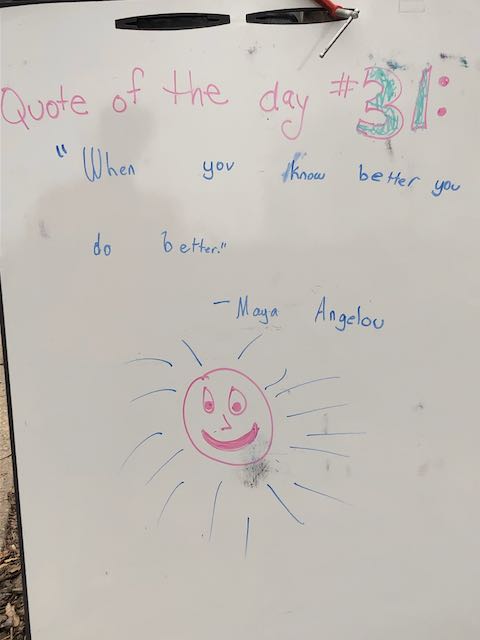 Quote of the day #31:
"When you know better you
do better."
- Maya Angelou